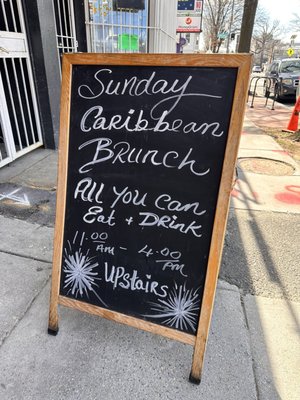 Sunday
Caribbean
Brunch
All You Can
Eat + Drink
11.00 AM - 4.00 PM
Upstairs